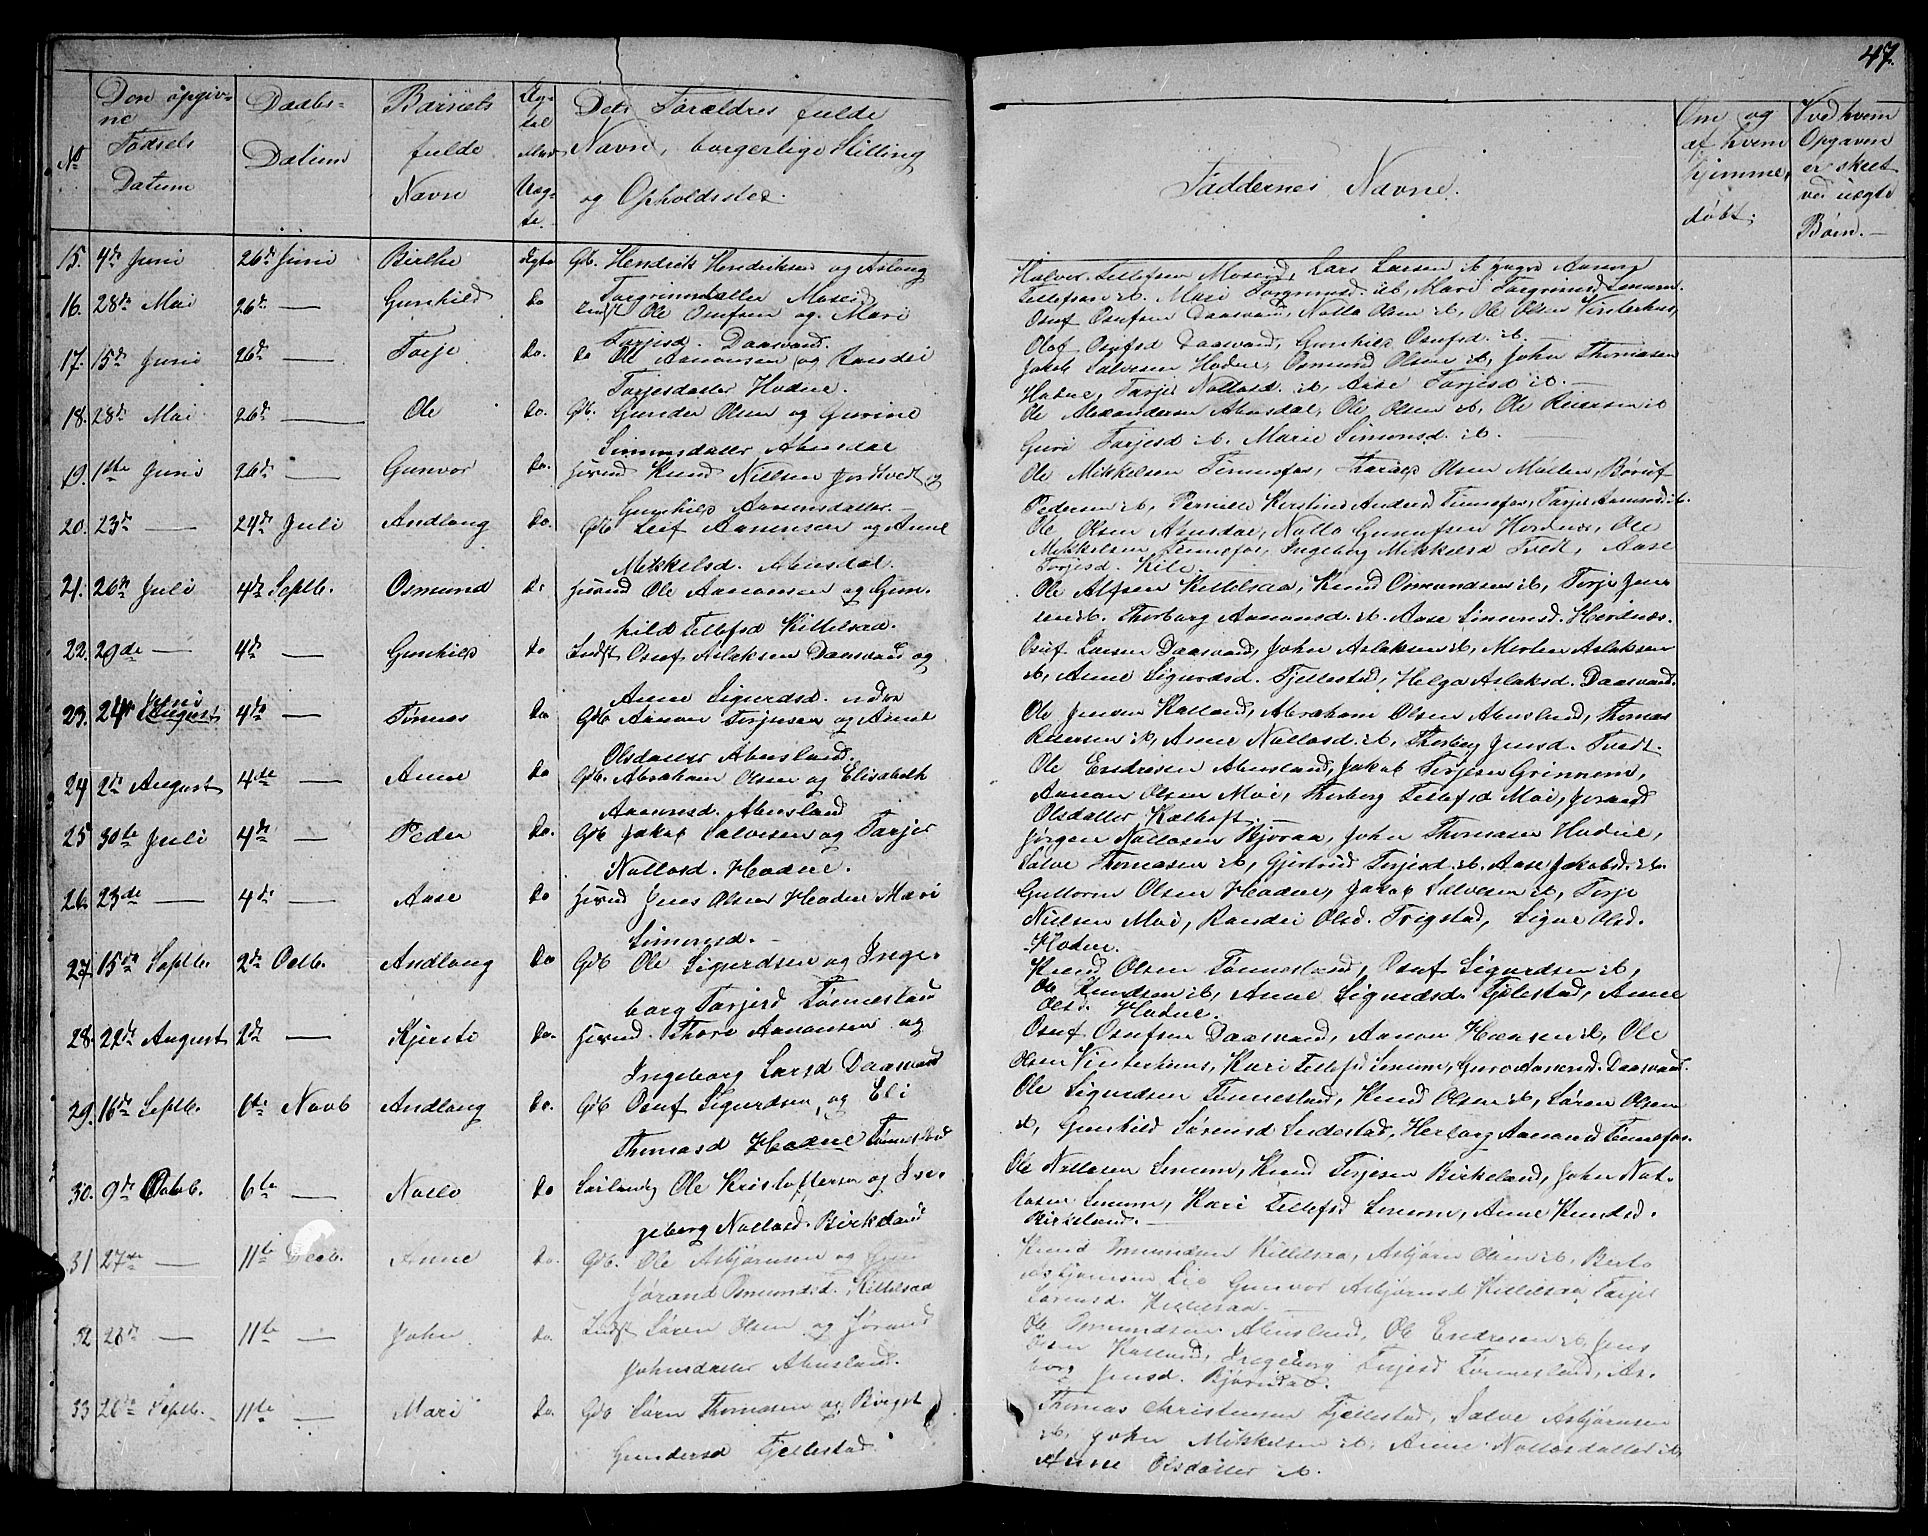 47.
No
Den opgiv-
ne
Fødsels
Datum
Daabs-
Datum
Barnets
fulde
Navn
Æg-
te
eller
Uæg-
te.
Dets Forældres fulde
Navn, borgerlige Stilling
og Opholdssted.
Faddernes Navne.
Om og
af hvem
hjemme-
døbt.
Ved hvem
Opgaven
er skeet
ved uægte
Børn.
15. 4de Juni 26de Juni Birthe Ægte Gdb. Hendrik Hendriksen og Aslaug
Torgrimsdatter Moseid
Halvor Tellefsen Moseid, Lars Larsen ib yngre Aanon
Tellefsen ib. Mari Torgrimsd. ib, Mari Torgrimsd Senum.
16. 28de Mai 26de — Gunhild do Indst Ole Osufsen og Mari
Torjesd. Daasvand.
Osuf Osufsen Daasvand, Nollo Olsen ib, Ole Olsen Vinterhus,
Olaf Osufsd Daasvand, Gunhild Osufsd. ib.
17. 15de Juni 26de — Torje do. do Ole Aanonsen og Randei
Torjesdatter Hodne.
Jakob Salvesen Hodne, Osmund Olsen ib, John Thomasen
Hodne, Torje Nollosd. ib, Aase Torjesd ib.
18. 28de Mai 26de — Ole do. Gdb. Gunder Olsen og Gurine
Simonsdatter Abusdal
Ole Alexandersen Abusdal, Ole Olsen ib, Ole Reiersen ib
Guri Torjesd ib. Marie Simonsd. ib.
19. 1ste Juni 26de — Gunvor do. Huusmd Knud Nielsen Jordtvedt og
Gunhild Aanonsdatter.
Ole Mikkelsen Tennefos, Olsen Møllen,
Pedersen ib, Pernille Kirstine Andersd Tennefos, Tarje Aanonsd. ib.
20. 23de — 24de Juli Andlaug do. Gdb Leif Aanensen og Anne
Mikkelsd. Abusdal.
Ole Olsen Abusdal, Nollo Gunufsen Hordnes, Ole
Mikkelsen Tennefos, Ingeborg Mikkelsd Tvedt, Aase
Torjesd. Kile.
21. 26de Juli 4de Septb. Osmund do Huusmd Ole Aanonsen og Gun-
hild Tellefsd Killelsaa.
Ole Alfsen Killelsaa, Knud Osmundsen ib, Torje Jen-
sen ib. Thorborg Aanonsd. ib. Aase Simonsd. Hordnes.
22. 29de — 4de — Gunhild do Indst Osuf Aslaksen Daasvand og
Anne Sigurdsd. nedre
Osuf Larsen Daasvand, John Aslaksen ib, Morten Aslaksen
ib, Anne Sigurdsd. Fjellestad, Helga Aslaksd. Daasvand.
23. 24de Juni August 4de — Tønnes do Gdb Aanon Torjusen og Anne
Olsdatter Abusland.
Ole Jensen Kalland, Abraham Olsen Abusland, Thomas
Retersen ib, Anne Nollosd. ib, Thorborg Jensd. Tvedt.
24 2de August 4de — Anne do Gdb. Abraham Olsen og Elisabeth
Aanonsd. Abusland
Ole Endresen Abusland, Jakob Torjesen Grimnem,
Aanon Olsen Moi, Thorborg Tellefsd Moi, Jorand
Olsdatter Kalhoft.
25 30te Juli 4de — Peder do. Gdb Jakob Salvesen og Tarjer
Nollosd. Hodne.
Jørgen Nollosen Bjoraa, John Thomasen Hodne,
Salve Thomasen ib, Gjertrud Torjesd. ib. Aase Jakobsd. ib.
26 23de — 4de — Aase do Huusmd Jens Olsen Hodne Mari
Simonsd.
Guttorm Olsen Hodne, Jakob Salvesen ib, Torje
Nielsen Moi, Randei Olsd. Frigstad, Signe Olsd.
Hodne.
27. 15de Septb. 2de Octb. Andlaug do Gdb Ole Sigurdsen og Inge-
borg Tarjesd Tønnesland
Knud Olsen Tønnesland, Osuf Sigurdsen ib,
Ole Knudsen ib, Anne Sigurdsd. Fjellestad, Anne
Olsd. Hodne.
28. 22de August 2de — Kjersti do. Huusmd. Thore Aanonsen og
Ingeborg Larsd Daasvand
Osuf Osufsen Daasvand, Aanon Hansen ib, Ole
Olsen Vinterhuus, Kari Tellefsd Senum, Guro Aanonsd. Daasvand.
29. 16de Septb. 6te Novb Andlaug do. Gdb Osuf Sigurdsen og Eli
Thomasd Hodne Tønnesland
Ole Sigurdsen Tønnesland, Knud Olsen ib, Søren Olsen
ib, Gunhild Sørensd Lidestad, Herborg Aanonsd Tennefos.
30. 9de Octob. 6te — Nollo do Ole Kristoffersen og In-
geborg Nollosd. Birkeland
Ole Nollosen Senum, Knud Torjesen Birkeland, John Nol-
losen Senum, Kari Tellefsd Senum, Anne Knudsd.
Birkeland.
31 27de — 11te Decb. Anne do. Gdb. Ole Asbjørnsen og
Jørand Osmundsd. Killelsaa
Knud Osmundsen Killelsaa, Asbjørn Olsen ib, Berte
Asbjørnsen Lie Gunvor Asbjørnsd Killelsaa, Tarjer
Sørensd. Killelsaa.
32 28de — 11te — John do. Indst Søren Olsen og Jorand
Johnsdatter Abusland.
Ole Osmundsen Abusland, Ole Endresen ib, Jens
Olsen Kalland, Ingeborg Torjesd Tønnesland, As-
borg Jensd. Bjørndal.
33 26de Septb. 11te — Mari do. Gdb Søren Thomasen og Birgit
Gundersd Fjellestad
Thomas Christensen Fjellestad, Salve Asbjørnsen
ib, John Mikkelsen ib, Anne Nollosdatter ib,
Anne Olsdatter ib.